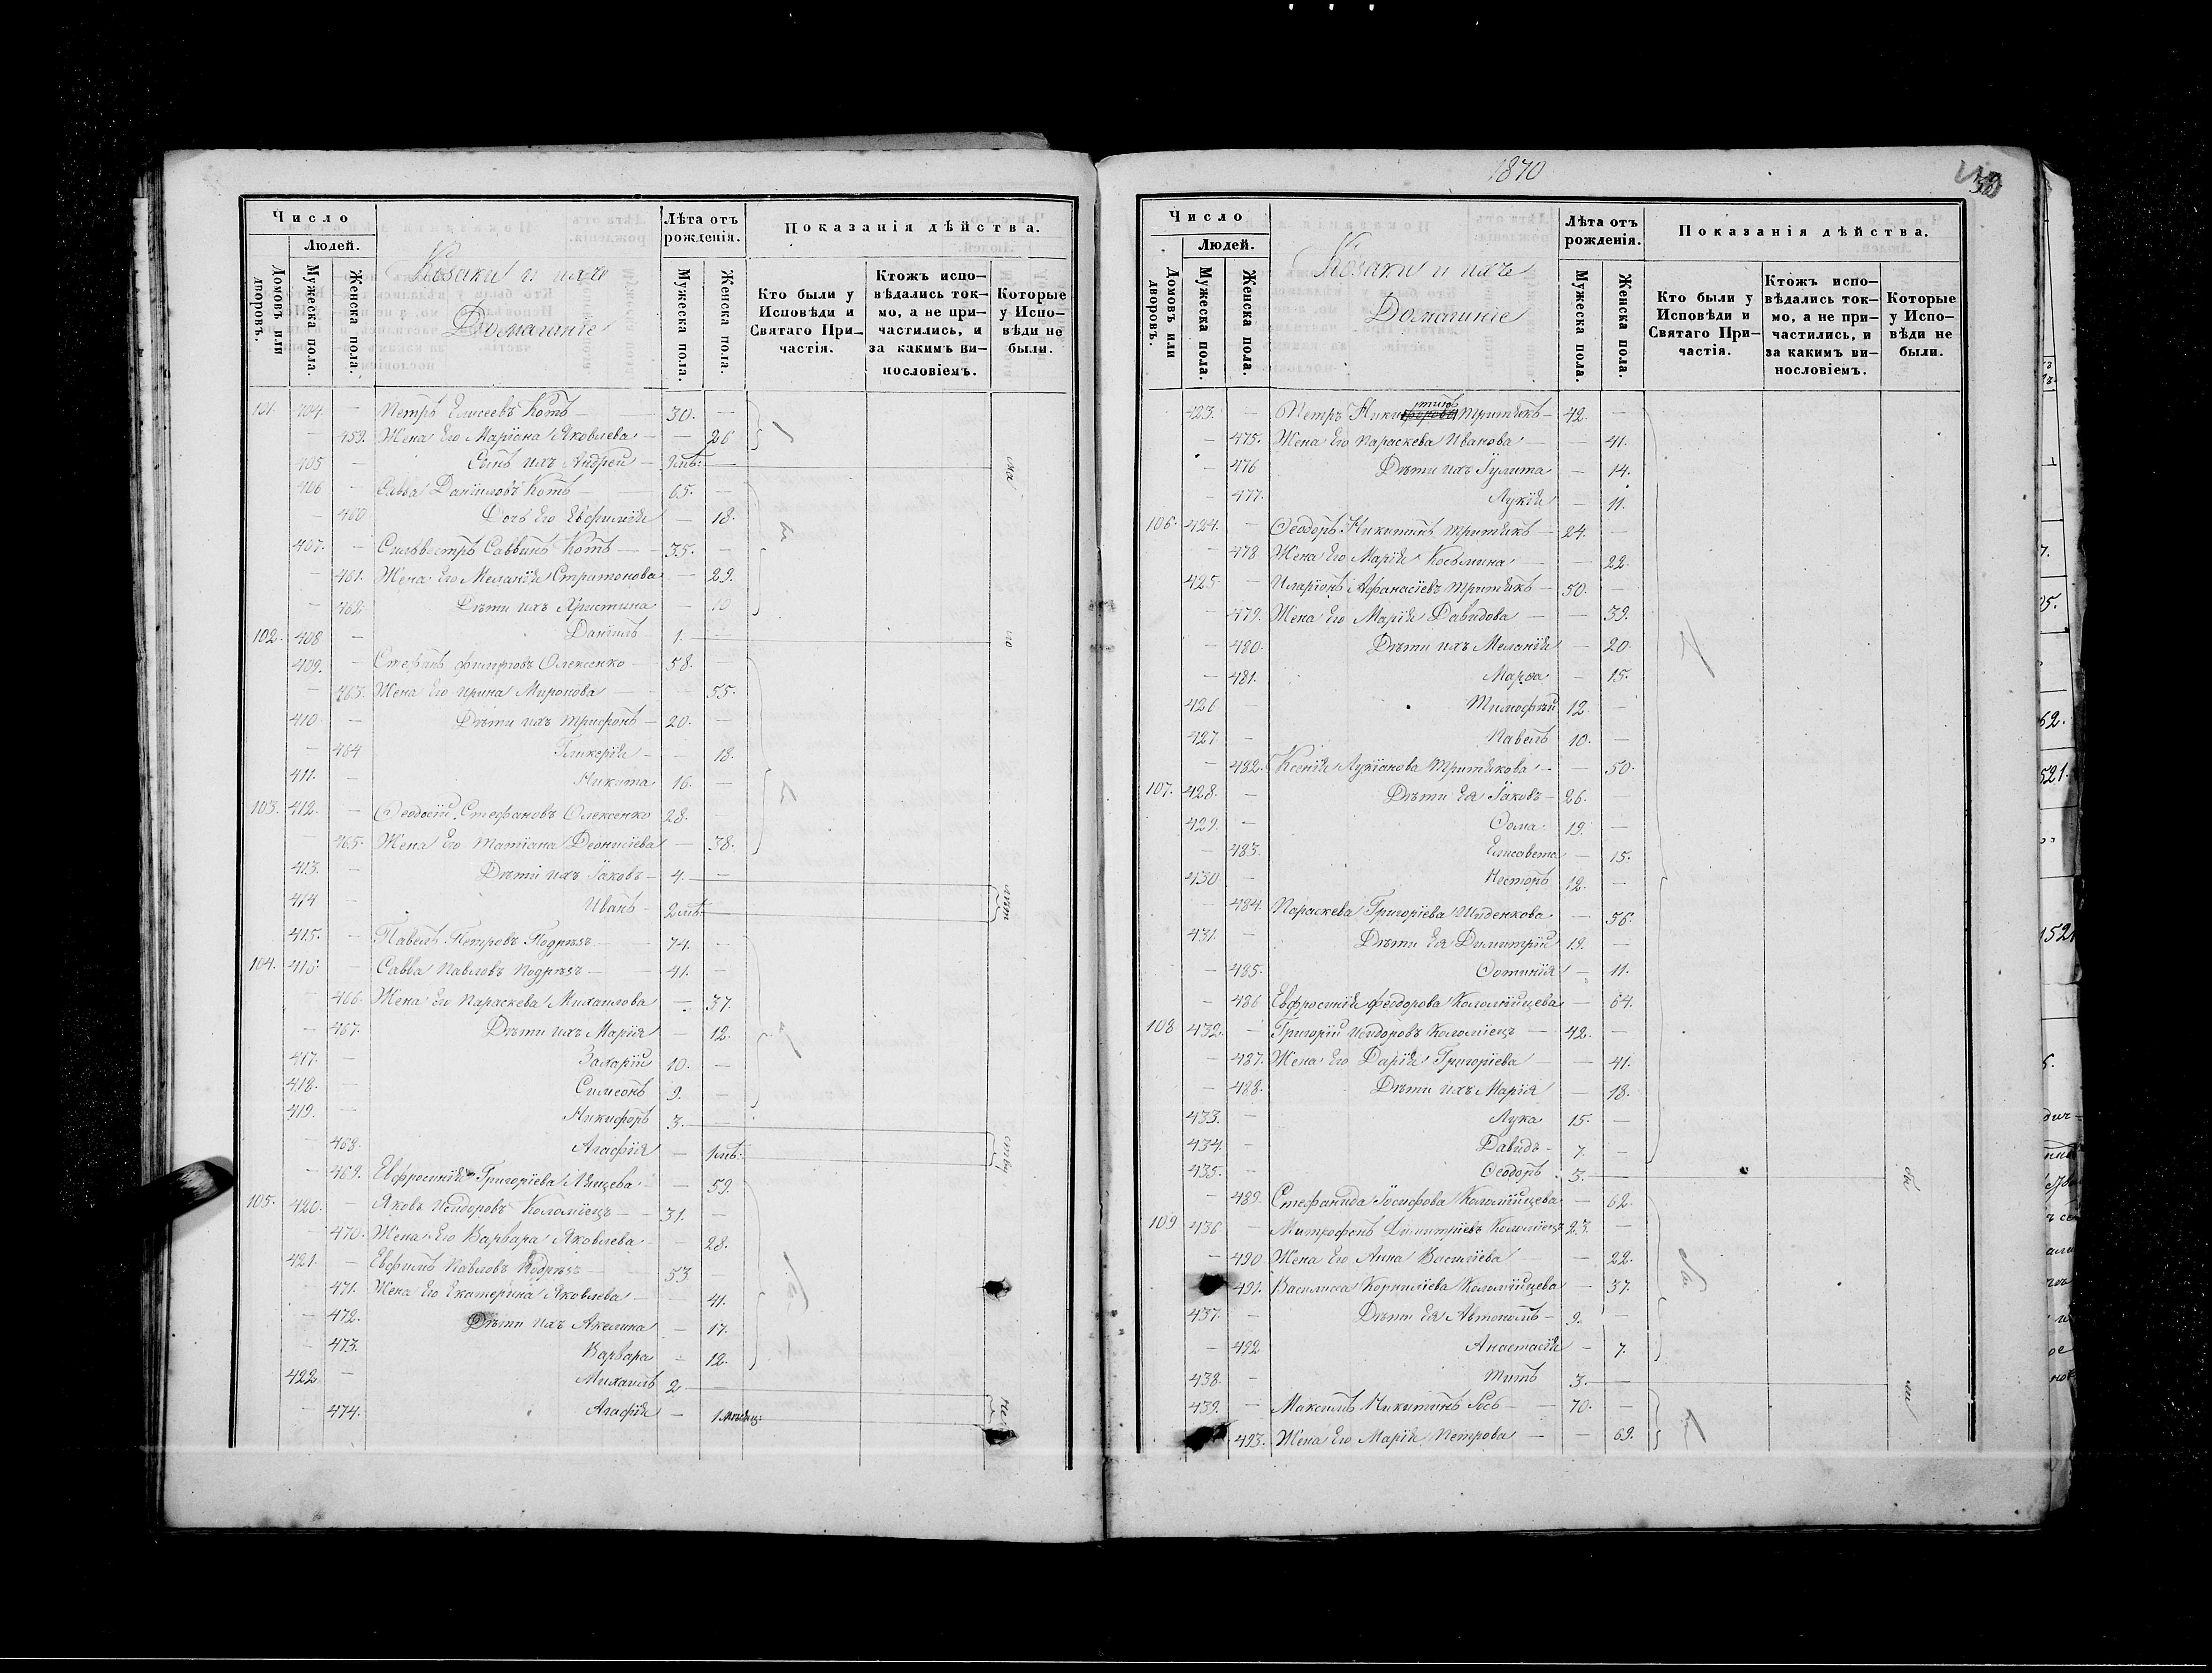 Число
Людей.
Домовъ или дворовъ.
Мужеска пола.
Женска пола.
Козаки и ихъ
Домашніе
Лѣта отъ рожденія.
Мужеска пола.
Женска пола.
Показанія дѣйства.
Кто были у Исповѣди и Святаго Причастія.
Ктожъ исповѣдались токмо, а не причастились, и за какимъ винословіемъ.
Которые у Исповѣди не были.
101. 404. — Петръ Елисеевъ Котъ — 30. —
— 459. Жена Его Маріана Яковлева — — 26
405 — Сынъ ихъ Андрей — 9 мѣ:
406 — Савва Даніиловъ Котъ — 65. —
— 460 Дочь Его Евфимія — 18.
407. — Сильвестръ Саввинъ Котъ — 35. —
— 461. Жена Его Меланія Стратонова — 29.
— 462. Дѣти ихъ Христина — 10
102. 408 — Даніилъ 1.
409. — Стефанъ Олексенко — 58. —
— 463. Жена Его Ирина Миронова — 55.
410 — Дѣти ихъ Трифонъ — 20. —
— 464 Гликерія — — 18.
411. — Никита 16. —
103. 412. — Ѳеодосій Стефановъ Олексенко 28. —
— 465. Жена Его Татіана Деонисіева — 38.
413. — Дѣти ихъ Іаковъ — 4. —
414 — Иванъ — 2 мѣ:
415. — Павелъ Петровъ Подрѣзъ — 74. —
104. 416. — Савва Павловъ Подрѣзъ — 41. —
— 466. Жена Его Параскева Михаилова — 37.
— 467. Дѣти ихъ Марія — 12.
417. — Захарій 10. —
418. — Симеонъ 9. —
419. — Никифоръ 3.
— 468. Агафія — 1 мѣ:
— 469. Евфросинія Григоріева — 59.
105. 420. — Яковъ Исидоровъ Коломіецъ — 31. —
— 470. Жена Его Варвара Яковлева — 28.
421. — Евфимъ Павловъ Подрѣзъ — 53 —
— 471. Жена Его Екатерина Яковлева — 41.
— 472. Дѣти ихъ Акелина — 17.
— 473. Варвара — 12.
422 — Михаилъ 2
— 474. Агафія — 1
1870
Число
Людей.
Домовъ или дворовъ.
Мужеска пола.
Женска пола.
Козаки и ихъ
Домашніе
Лѣта отъ рожденія.
Мужеска пола.
Женска пола.
Показанія дѣйства.
Кто были у Исповѣди и Святаго Причастія.
Ктожъ исповѣдались токмо, а не причастились, и за какимъ винословіемъ.
Которые у Исповѣди не были.
423. — Петръ Никитинъ Тритякъ — 42. —
— 475. Жена Его Параскева Иванова — — 41.
— 476 Дѣти ихъ Іулита — 14.
— 477. Лукія — 11.
106. 424. — Ѳеодоръ Никитинъ Тритякъ — 24. —
— 478 Жена Его Марія Косьмина — 22.
425. — Иларіонъ Афанасіевъ Тритякъ — 50. —
— 479. Жена Его Марія Давидова — — 39.
— 480. Дѣти ихъ Меланія — 20.
— 481. Марѳа — 15.
426 — Тимофѣй 12. —
427 — Павелъ 10. —
— 482. Ксенія Лукіанова Тритякова — — 50.
107. 428. — Дѣти Ея Іаковъ — 26. —
429. — Ѳома 19. —
— 483. Елисавета — 15.
430. — Несторъ 12. —
— 484. Параскева Григоріева — 56.
431. — Дѣти Ея Димитрій 19. —
— 485. Ѳотинія — 11.
— 486 Евфросинія Феодорова Коломійцева — 64.
108 432. — Григорій Исидоровъ Коломіецъ — 42. —
— 487. Жена Его Дарія Григоріева — — 41.
— 488. Дѣти ихъ Марія — 18.
433. — Лука 15. —
434. — Давидъ — 7. —
435. — Ѳеодоръ 3.
— 489. Стефанида Іосифова Коломійцева — 62.
109 436 — Митрофанъ Димитріевъ Коломіецъ 23. —
— 490 Жена Его Анна Василіева — 22.
491. Василиса Корниліева Коломійцева — 37.
437. — Дѣти Ея Автономъ — 9. —
— 492 Анастасія — 7.
438. — Титъ 3.
439. — Максимъ Никитинъ — 70. —
493. Жена Его Марія Петрова — — 69.